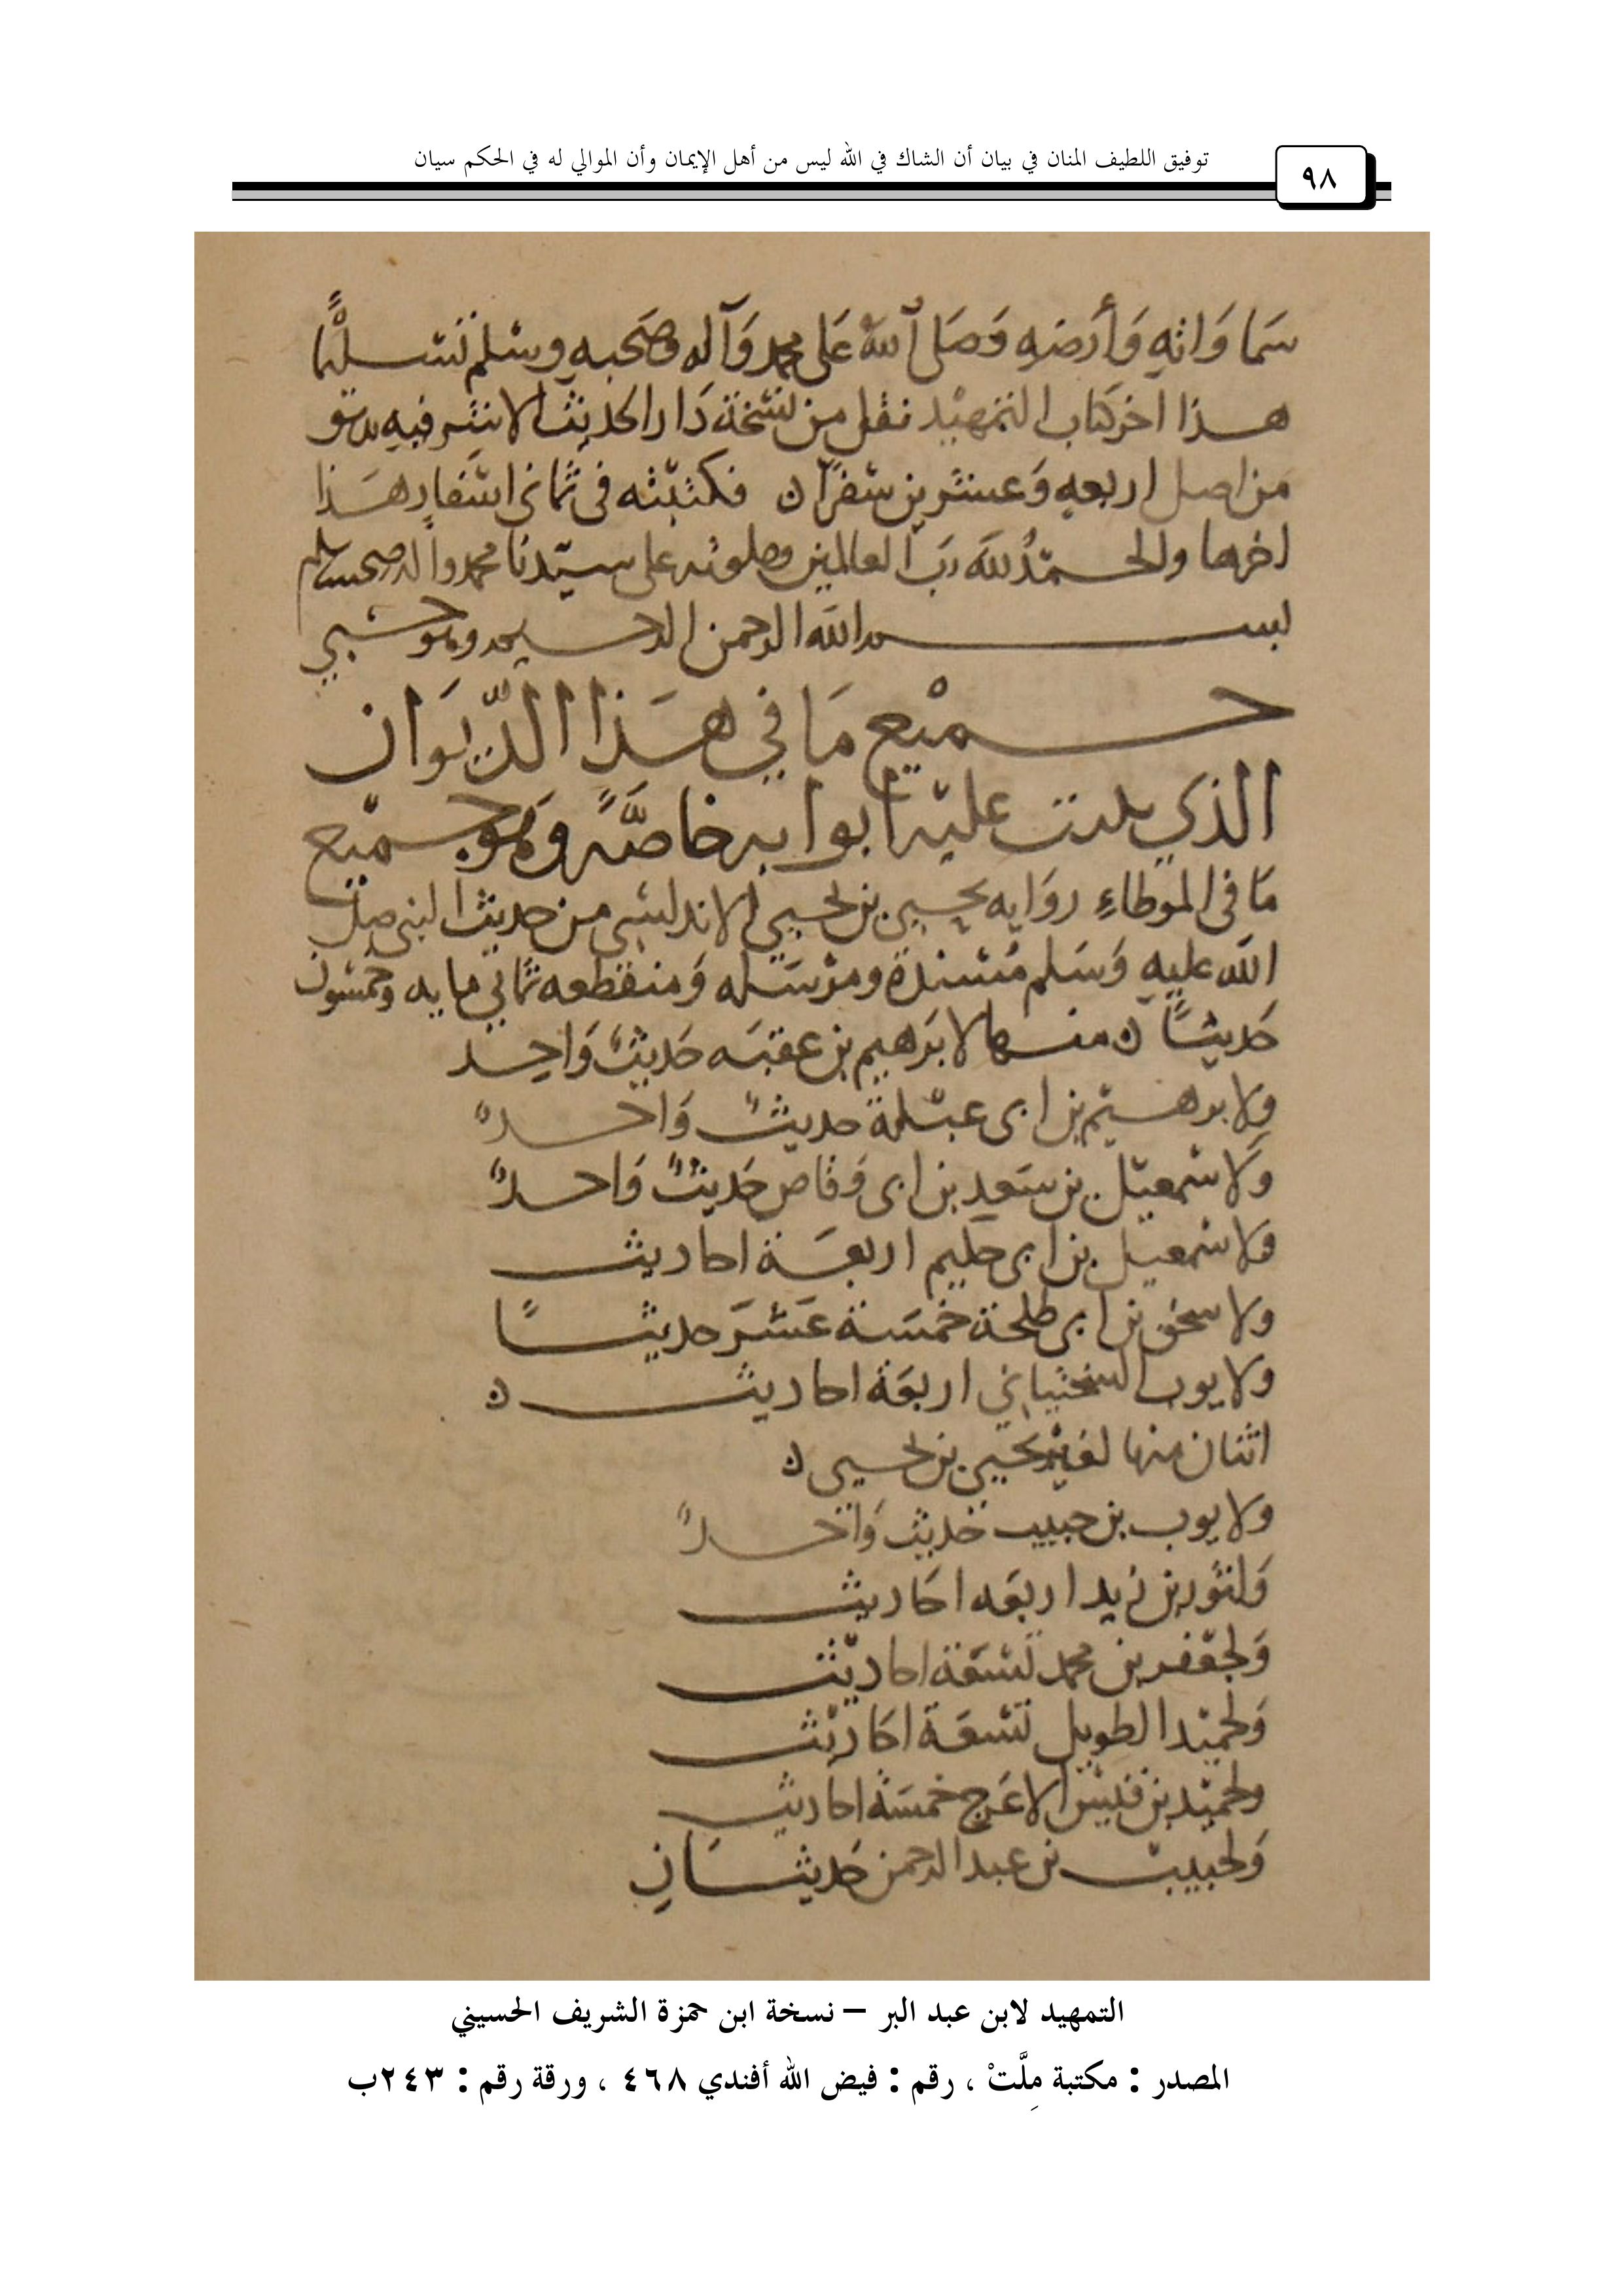 توفيق اللطيف المنان في بيان أن الشاك في الله ليس من أهل الإيمان وأن الموالي له في الحكم سيان
٩٨
سَما وَاتهِ وَأرضهِ وَصَلى اللهُ عَلى محمد وَآله وصَحبهِ وسلم تسليمًا
هذا اخر كتاب التمهيد نقل من نسخة دَار الحديث الاشرفيه بدمشق
من اصل اربعهِ وَعشرين سفرًا ن فكتبته في ثماني اسفارٍ هَذا
اخرها والحمدُ للهَ ربَ العالمين وصلوته على سيدنا محمد واله وصحبه وسلم
بسم الله الرحمن الرحيم وهو حسبي
جميع مَا في هَذا الدّيوَان
الذي بنيت عليه ابوابه خاصَّةً وَهوَ جميع
مَا في الموَطاءِ روَايه يحيى بن يحيى الاندلسي من حديث النبي صلى
الله عليهِ وَسَلم مُسْندة ومرْسَله وَمنقطعه ثماني مايه وخمسون
حَديثًا ن منها لابرَهيم بن عقبَه حَديثٌ وَاحِد
ولابرهيم بن ابى عبلة حديثٌ وَاحدٌ
وَلاسمعيل بن سَعدِ بن ابى وَقاص حَديثٌ وَاحدٌ
ولاسمعيل بن ابى حكيم اربعَة احاديث
ولاسحق بن ابى طلحة خمسَة عَشرَ حديثًا
ولايوب السختياني اربعَة احاديث ن
اثنان منها لغير يحيى بن يحيى ن
ولايوب بن حبيب حديث وَاحدٌ
وَلثور بن زيد اربعَه احَاديث
وَلجعفر بن محمد تسعَة احاديث
وَلحميد الطويل تسعَة احَاديث
ولحميد بن قيس الاعَرج خمسَة احاديث
وَلخبيب بن عبد الرحمن حَديثَانِ
التمهيد لابن عبد البر – نسخة ابن حمزة الشريف الحسيني
المصدر : مكتبة مِلَّتْ ، رقم : فيض الله أفندي ٤٦٨ ، ورقة رقم : ٢٤٣ب